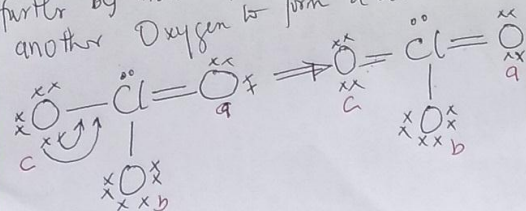 further by
another Oxygen to form a
O — Cl = O ⇒ O = Cl = O
c a c a
O b O b